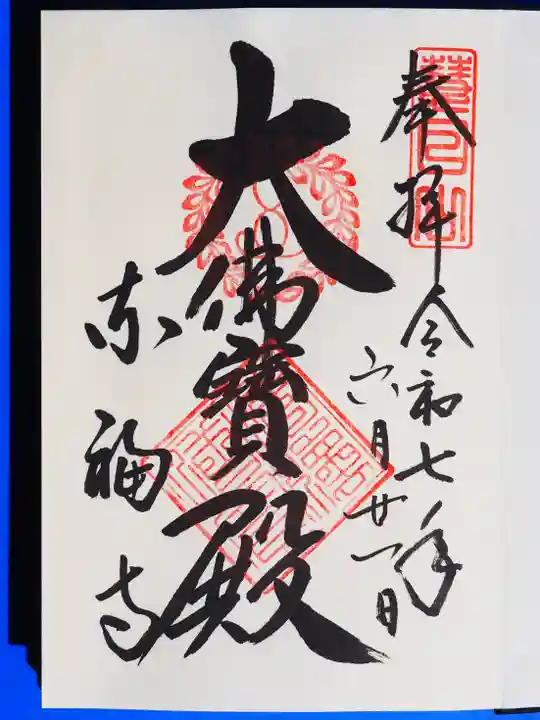 奉拝 令和七年
六月廿一日
大佛寳殿
東福寺
慧日山